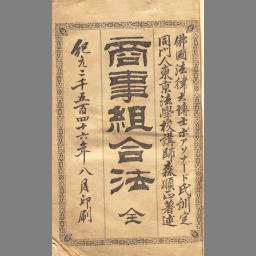 佛國法律大博士ボアソナード氏訓定
同門人東京法學校講師森順正著述
商事組合法 全
紀元二千五百四十六年八月印刷